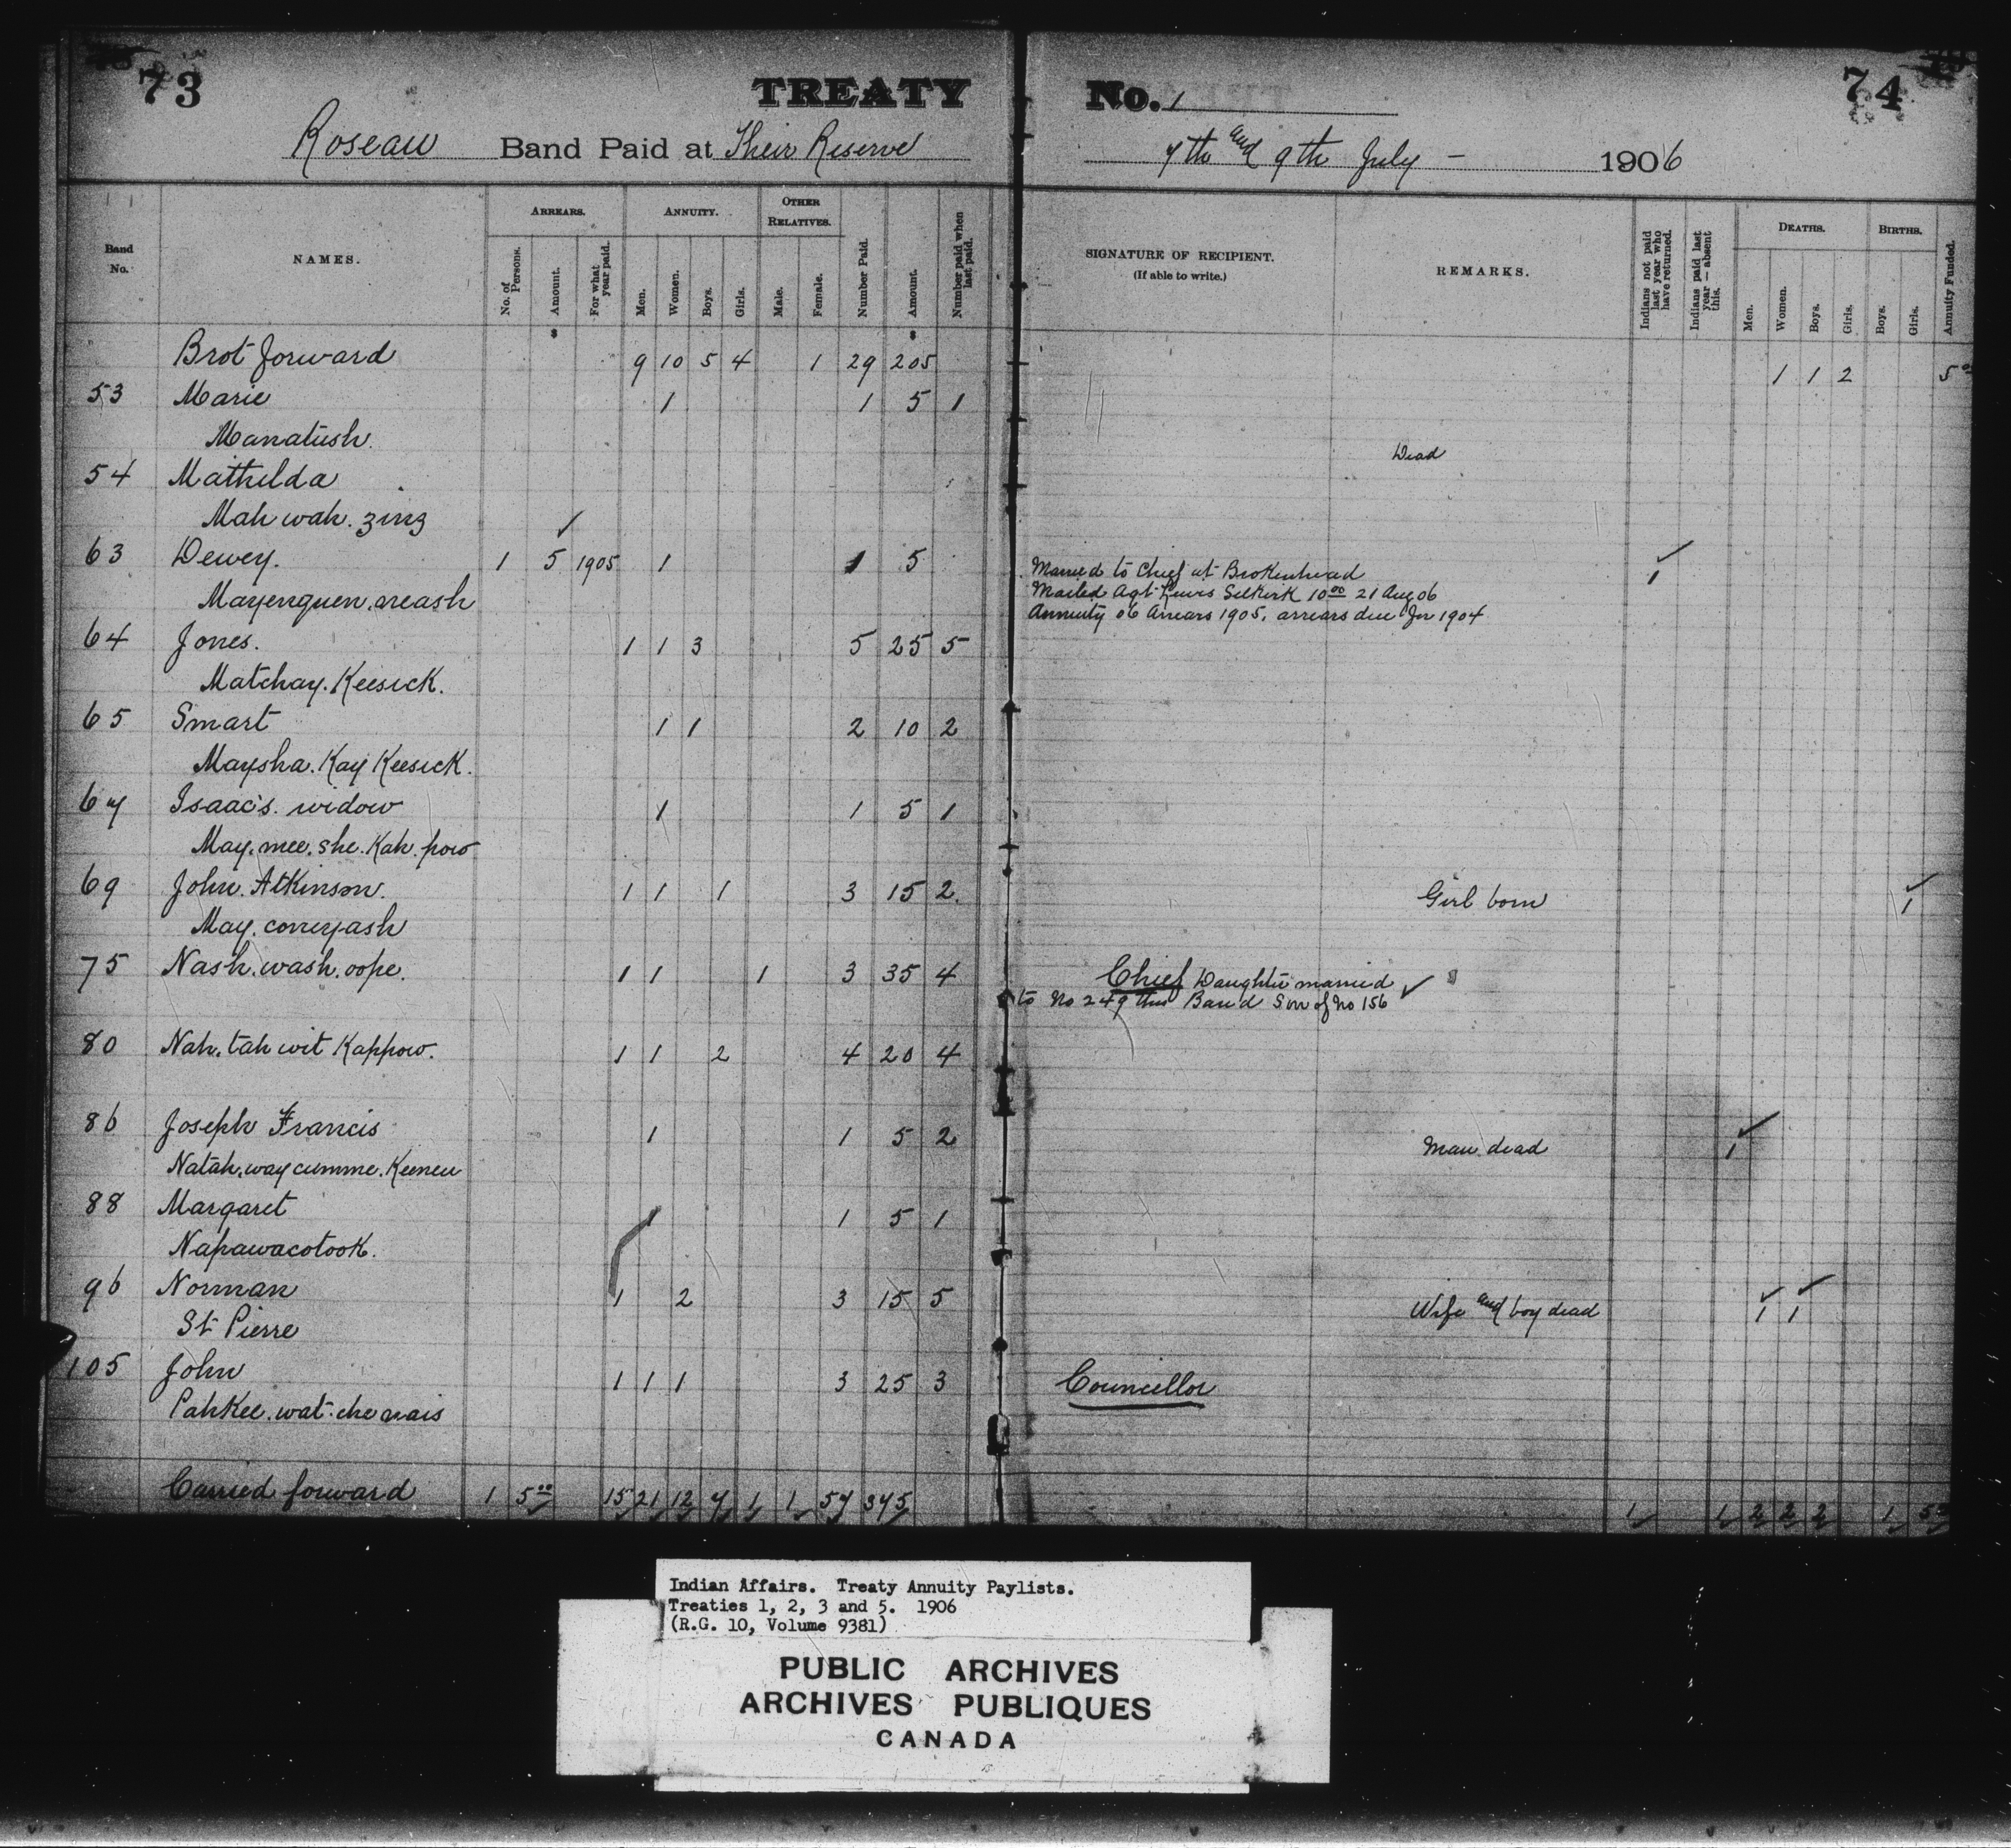 73
TREATY No. 1
74
Roseau Band Paid at Their Reserve
7th and 9th July - 1906
Band No.
NAMES.
ARREARS.
No. of Persons.
Amount.
For what year paid.
ANNUITY.
Men.
Women.
Boys.
Girls.
OTHER RELATIVES.
Male.
Female.
Number Paid.
Amount.
Number paid when last paid.
SIGNATURE OF RECIPIENT.
(If able to write.)
REMARKS.
Indians not paid last year who have returned.
Indians paid last year — absent this.
DEATHS.
Men.
Women.
Boys.
Girls.
BIRTHS.
Boys.
Girls.
Annuity Funded.
$ $
Brot forward 9 10 5 4 1 29 205 1 1 2 5 00
53 Marie 1 1 5 1
Manatush.
Dead
54 Mathilda
Mah wah. zing
63 Dewey. 1 5 1905 1 1 5 Married to Chief at Brokenhead 1
Mailed Agt Lewis Selkirk 10 00 21 Aug 06
Mayenguen. neash
Annuity 06 Arrears 1905, arrears due for 1904
64 Jones. 1 1 3 5 25 5
Matchay. Keesick.
65 Smart 1 1 2 10 2
Maysha. Kay Keesick.
67 Isaac's. widow 1 1 5 1
May. mee. she. Kah. pow
69 John. Atkinson. 1 1 1 3 15 2. Girl born 1
May. coneyash
75 Nash. wash. oope. 1 1 1 3 35 4 Chief Daughter married
to No 249 this Band Son of No 156
80 Nah. tah wit Kappow. 1 1 2 4 20 4
86 Joseph Francis 1 1 5 2 Man dead 1
Natah. way cumme. Keeneu
88 Margaret 1 1 5 1
Napawacotook.
96 Norman 1 2 3 15 5 Wife and boy dead 1 1
St Pierre
105 John 1 1 1 3 25 3 Councillor
Pahkee. wat. che nais
Carried forward 1 5 00 15 21 12 7 1 1 57 345 1 1 2 2 2 1 5 00
Indian Affairs. Treaty Annuity Paylists.
Treaties 1, 2, 3 and 5. 1906
(R.G. 10, Volume 9381)
PUBLIC ARCHIVES
ARCHIVES PUBLIQUES
CANADA